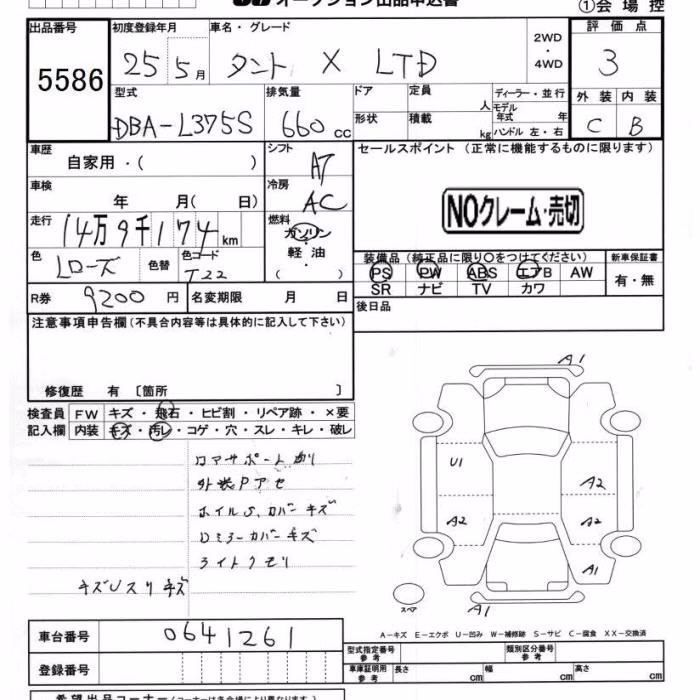 オークション出品申込書
①会場控
出品番号 初度登録年月 車名・グレード 2WD・4WD 評価点
5586 25 5月 タント X LTD 3
型式 排気量 ドア 定員 人 ディーラー・並行 外装 内装
形状 積載 kg モデル年式 年 ハンドル 左・右
DBA-L375S 660cc C B
車歴 シフト セールスポイント (正常に機能するものに限ります)
自家用・( ) AT
車検 冷房
年 月( 日) AC
NOクレーム・売切
走行 燃料
14万9千174km ガソリン・軽油・( )
色 色替 色コード 装備品 (純正品に限り〇をつけてください) 新車保証書
Lローズ T22 PS PW ABS エアB AW 有・無
SR ナビ TV カワ
R券 9200円 名変期限 月 日 後日品
注意事項申告欄(不具合内容等は具体的に記入して下さい)
修復歴 有 〔箇所 〕
検査員 FW キズ・飛石・ヒビ割・リペア跡・×要
記入欄 内装 キズ・汚レ・コゲ・穴・スレ・キレ・破レ
A1
U1 A2
A2 A2
A1
A1
スペア
外装Pアセ
ホイルS、カバーキズ
Dミラーカバーキズ
ライトクモリ
キズUスリキズ
A-キズ E-エクボ U-凹み W-補修跡 S-サビ C-腐食 XX-交換済
車台番号 0641261
型式指定番号 参考 類別区分番号 参考
登録番号 車庫証明用 参考 長さ cm 幅 cm 高さ cm
希望出品コーナー